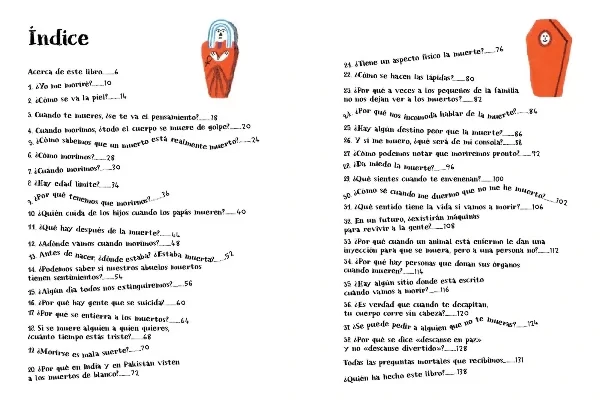 Índice
Acerca de este libro___6
1. ¿Yo me moriré?___10
2. ¿Cómo se va la piel?___14
3. Cuando te mueres, ¿se te va el pensamiento?___18
4. Cuando morimos, ¿todo el cuerpo se muere de golpe?___20
5. ¿Cómo sabemos que un muerto está realmente muerto?___24
6. ¿Cómo morimos?___28
7. ¿Cuando morimos?___30
8. ¿Hay edad límite?___34
9. ¿Por qué tenemos que morirnos?___36
10. ¿Quién cuida de los hijos cuando los papás mueren?___40
11. ¿Qué hay después de la muerte?___44
12. ¿Adónde vamos cuando morimos?___48
13. Antes de nacer, ¿dónde estaba? ¿Estaba muerta?___52
14. ¿Podemos saber si nuestros abuelos muertos
tienen sentimientos?___54
15. ¿Algún día todos nos extinguiremos?___56
16. ¿Por qué hay gente que se suicida?___60
17. ¿Por qué se entierra a los muertos?___64
18. Si se muere alguien a quien quieres,
¿cuánto tiempo estás triste?___68
19. ¿Morirse es mala suerte?___70
20. ¿Por qué en India y en Pakistán visten
a los muertos de blanco?___72
21. ¿Tiene un aspecto físico la muerte?___76
22. ¿Cómo se hacen las lápidas?___80
23. ¿Por qué a veces a los pequeños de la familia
no nos dejan ver a los muertos?___82
24. ¿Por qué nos incomoda hablar de la muerte?___84
25. ¿Hay algún destino peor que la muerte?___86
26. Y si me muero, ¿qué será de mi consola?___88
27. ¿Cómo podemos notar que moriremos pronto?___92
28. ¿Da miedo la muerte?___96
29. ¿Qué sientes cuando te envenenan?___100
30. ¿Cómo sé cuando me duermo que no me he muerto?___102
31. ¿Qué sentido tiene la vida si vamos a morir?___106
32. En un futuro, ¿existirán máquinas
para revivir a la gente?___108
33. ¿Por qué cuando un animal está enfermo le dan una
inyección para que se muera, pero a una persona no?___112
34. ¿Por qué hay personas que donan sus órganos
cuando mueren?___114
35. ¿Hay algún sitio donde está escrito
cuándo vamos a morir?___116
36. ¿Es verdad que cuando te decapitan,
tu cuerpo corre sin cabeza?___120
37. ¿Se puede pedir a alguien que no te mueras?___124
38. ¿Por qué se dice «descanse en paz»
y no «descanse divertido»?___128
Todas las preguntas mortales que recibimos___131
¿Quién ha hecho este libro?___138